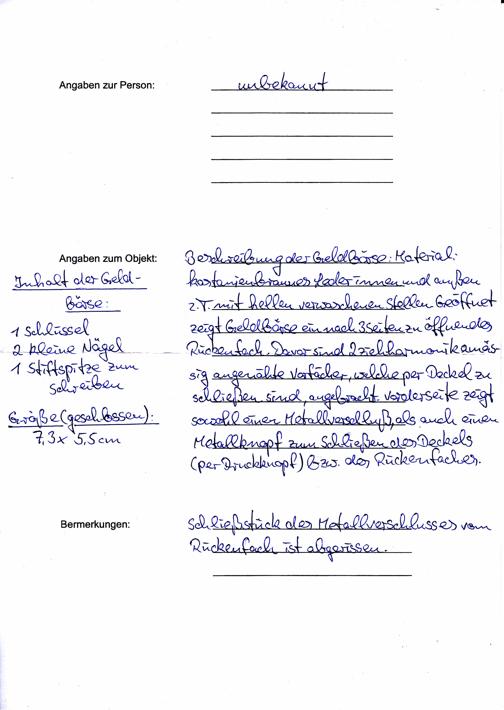 Angaben zur Person: unbekannt
Angaben zum Objekt:
Beschreibung der Geldbörse: Material:
kastanienbraunes Leder innen und außen
z.T. mit hellen verwaschenen Stellen Geöffnet
zeigt Geldbörse ein nach 3 Seiten zu öffnendes
Rückenfach. Davor sind 2 ziehharmonikamäs-
sig angenähte Vorfächer, welche per Deckel zu
schließen sind, angebracht. Vorderseite zeigt
sowohl einen Metallverschluß, als auch einen
Metallknopf zum Schließen des Deckels
(per Druckknopf) bzw. des Rückenfaches.
Inhalt der Geld-
börse:
1 Schlüssel
2 kleine Nägel
1 Stiftspitze zum
Schreiben
Größe (geschlossen):
7,3 x 5,5 cm
Bermerkungen:
Schließstück des Metallverschlusses vom
Rückenfach ist abgerissen.